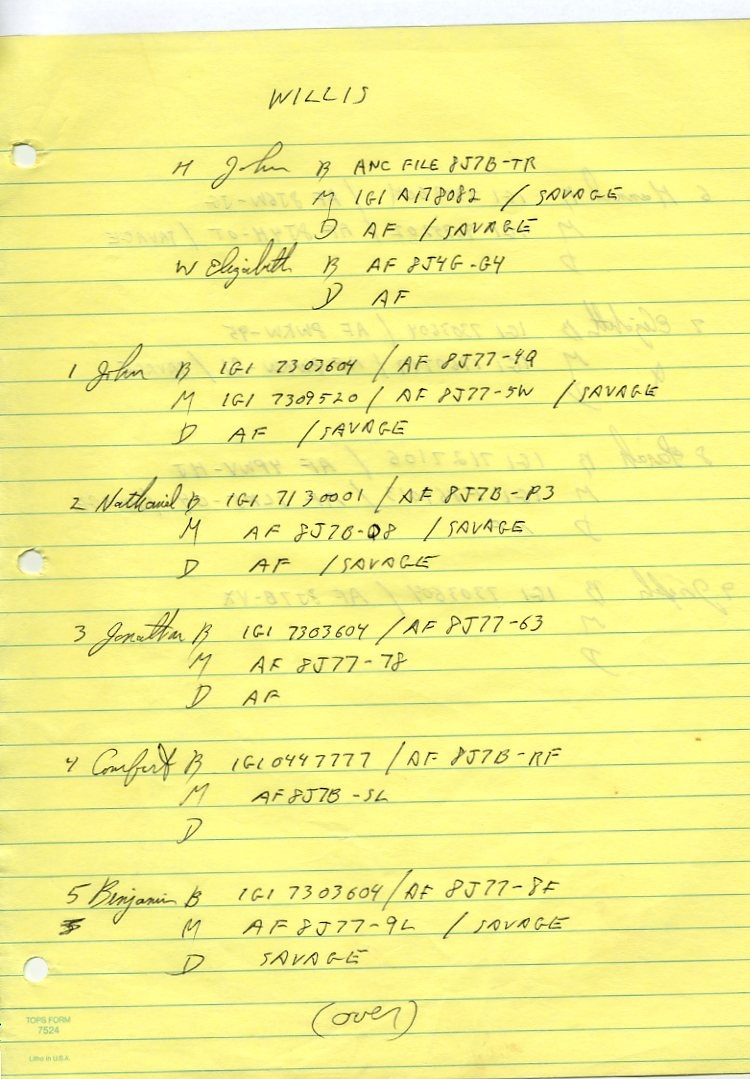 WILLIS
H John B ANC FILE 8J7B-TR
M IGI A178082 / SAVAGE
D AF / SAVAGE
W Elizabeth B AF 8J4G-G4
D AF
1 John B IGI 7303604 / AF 8J77-4Q
M IGI 7309520 / AF 8J77-5W / SAVAGE
D AF / SAVAGE
2 Nathaniel B IGI 7130001 / AF 8J7B-P3
M AF 8J7B-Q8 / SAVAGE
D AF / SAVAGE
3 Jonathan B IGI 7303604 / AF 8J77-63
M AF 8J77-78
D AF
4 Comfort B IGI 0447777 / AF 8J7B-RF
M AF 8J7B-SL
D
5 Benjamin B IGI 7303604 / AF 8J77-8F
M AF 8J77-9L / SAVAGE
D SAVAGE
(over)
TOPS FORM
7524
Litho in U.S.A.